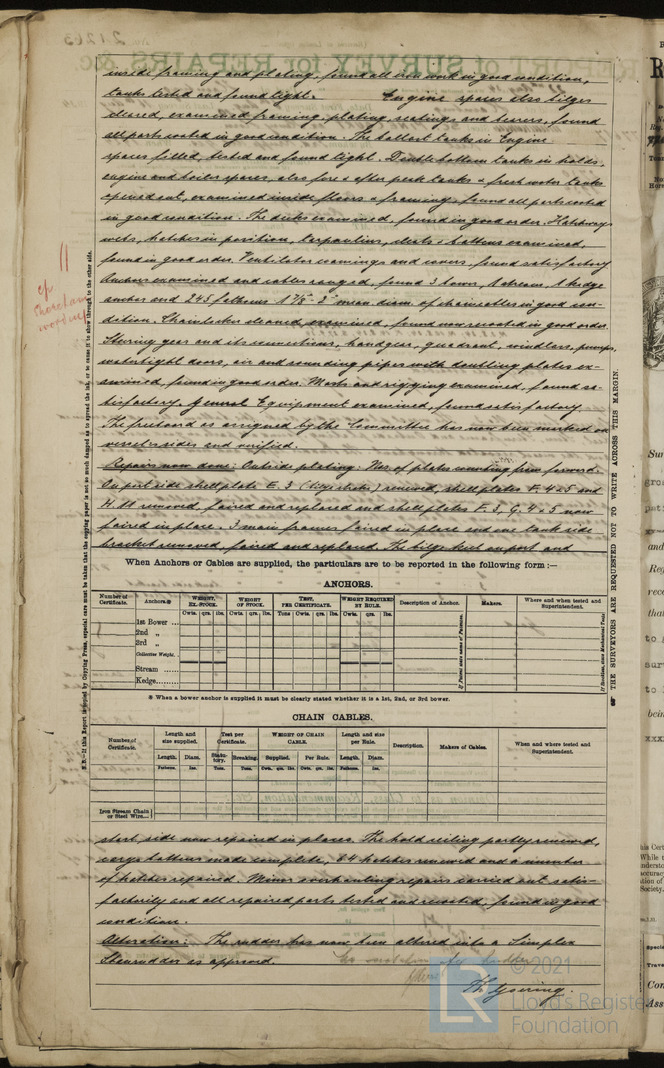 inside framing and plating, found all iron work in good condition,
tanks tested and found tight. Engine spaces also bilges
cleared, examined framing, plating, seatings and bearers, found
all parts coated in good condition. The ballast tanks in Engine
spaces filled, tested and found tight. Double bottom tanks in holds,
engine and boiler spaces, also fore & after peak tanks & fresh water tanks
opened out, examined inside floors & framing, found all parts coated
in good condition. The decks examined, found in good order. Hatchways
webs, hatches in position, tarpaulins, cleats & battens examined,
found in good order. Ventilator coamings and covers, found satisfactory
Anchors examined and cables ranged, found 3 bower, 1 stream, 1 kedge
anchor and 245 fathoms 1 7/8" - 2" mean diam of chain cables in good con-
dition. Chainlocker cleaned, examined, found now recoated in good order.
Steering gear and its connections, handgear, quadrant, windlass, pumps,
watertight doors, air and sounding pipes with doubling plates ex-
amined, found in good order. Masts and rigging examined, found sa-
tisfactory. General Equipment examined, found satisfactory.
The freeboard as assigned by the Committee has now been marked on
vessel's sides and verified.
Repairs now done: Outside plating: Nos. of plates counting from forward.
On port side shell plate E. 3 (bilge strake) renewed, shell plates F. 4 & 5 and
H. 11 removed, faired and replaced and shell plates F. 3, G. 4 & 5 now
faired in place. 3 main frames faired in place and one tank side
bracket removed, faired and replaced. The bilge keel on port and
When Anchors or Cables are supplied, the particulars are to be reported in the following form :—
ANCHORS.
Number of Certificate.
Anchors.※
WEIGHT, EX. STOCK.
WEIGHT OF STOCK.
TEST, PER CERTIFICATE.
WEIGHT REQUIRED BY RULE.
Description of Anchor.
Makers.
Where and when tested and Superintendent.
Cwts. qrs. lbs. Cwts. qrs. lbs. Tons Cwts. qrs. lbs. Cwts. qrs. lbs.
1st Bower ...
2nd „
3rd „
Collective Weight.
Stream ......
Kedge.........
※ When a bower anchor is supplied it must be clearly stated whether it is a 1st, 2nd, or 3rd bower.
CHAIN CABLES.
Number of Certificate.
Length and size supplied.
Test per Certificate.
WEIGHT OF CHAIN CABLE.
Length and size per Rule.
Description.
Makers of Cables.
When and where tested and Superintendent.
Length. Diam. Statutory. Breaking. Supplied. Per Rule. Length. Diam.
Fathoms. Ins. Tons. Tons. Cwts. qrs. lbs. Cwts. qrs. lbs. Fathoms. Ins.
Iron Stream Chain or Steel Wire...
starb. side now repaired in places. The hold ceiling partly renewed,
cargo battens made complete, 84 hatches renewed and a number
of hatches repaired. Minor overhauling repairs carried out satis-
factorily and all repaired parts tested and recoated, found in good
condition.
Alteration: The rudder has now been altered into a Simplex
Starrudder as approved.
THE SURVEYORS ARE REQUESTED NOT TO WRITE ACROSS THIS MARGIN.
© 2021
Lloyd's Register
Foundation